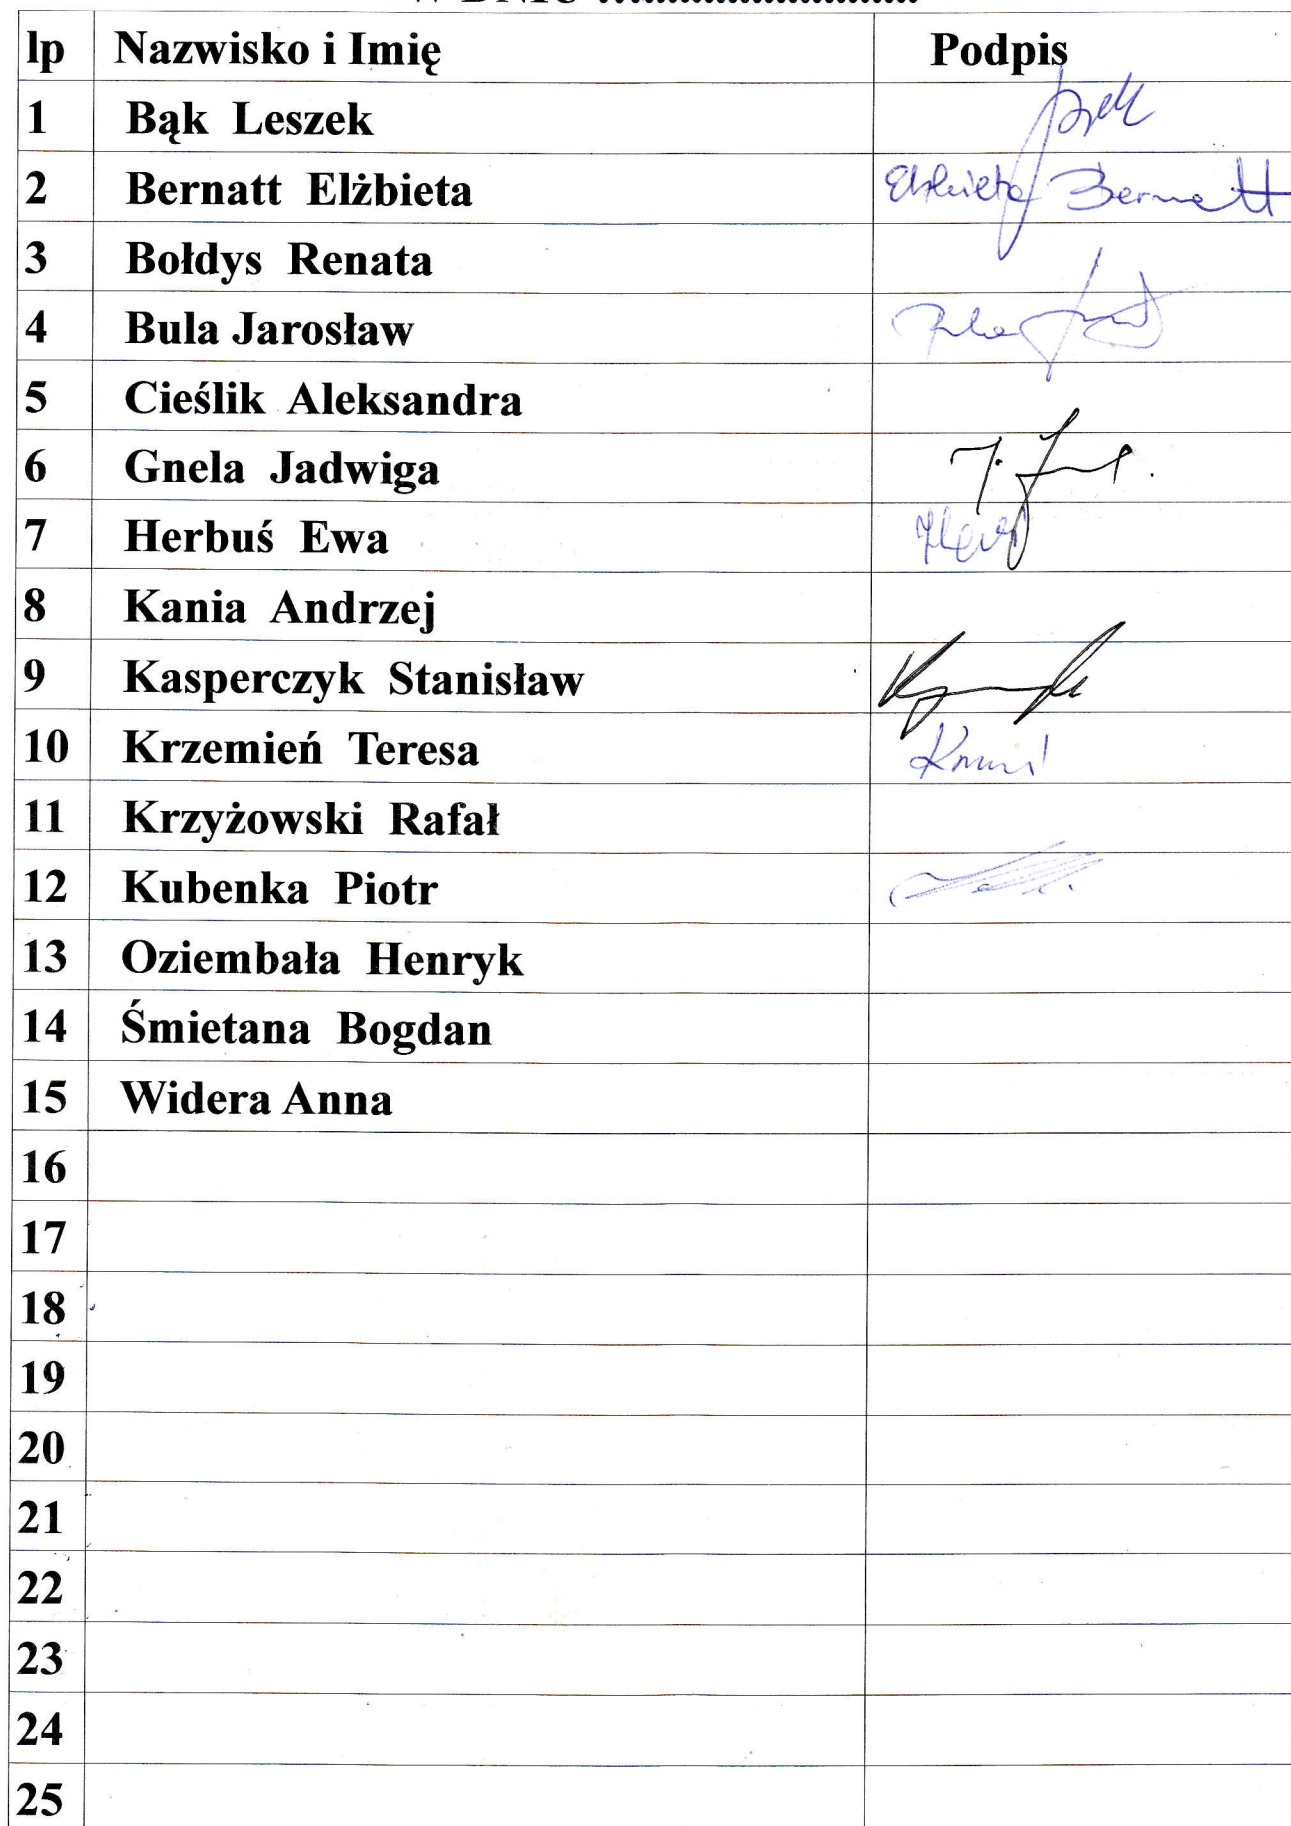 W DNIU ................................
lp Nazwisko i Imię Podpis
1 Bąk Leszek
2 Bernatt Elżbieta Elżbieta Bernatt
3 Bołdys Renata
4 Bula Jarosław
5 Cieślik Aleksandra
6 Gnela Jadwiga
7 Herbuś Ewa
8 Kania Andrzej
9 Kasperczyk Stanisław
10 Krzemień Teresa
11 Krzyżowski Rafał
12 Kubenka Piotr
13 Oziembała Henryk
14 Śmietana Bogdan
15 Widera Anna
16
17
18
19
20
21
22
23
24
25